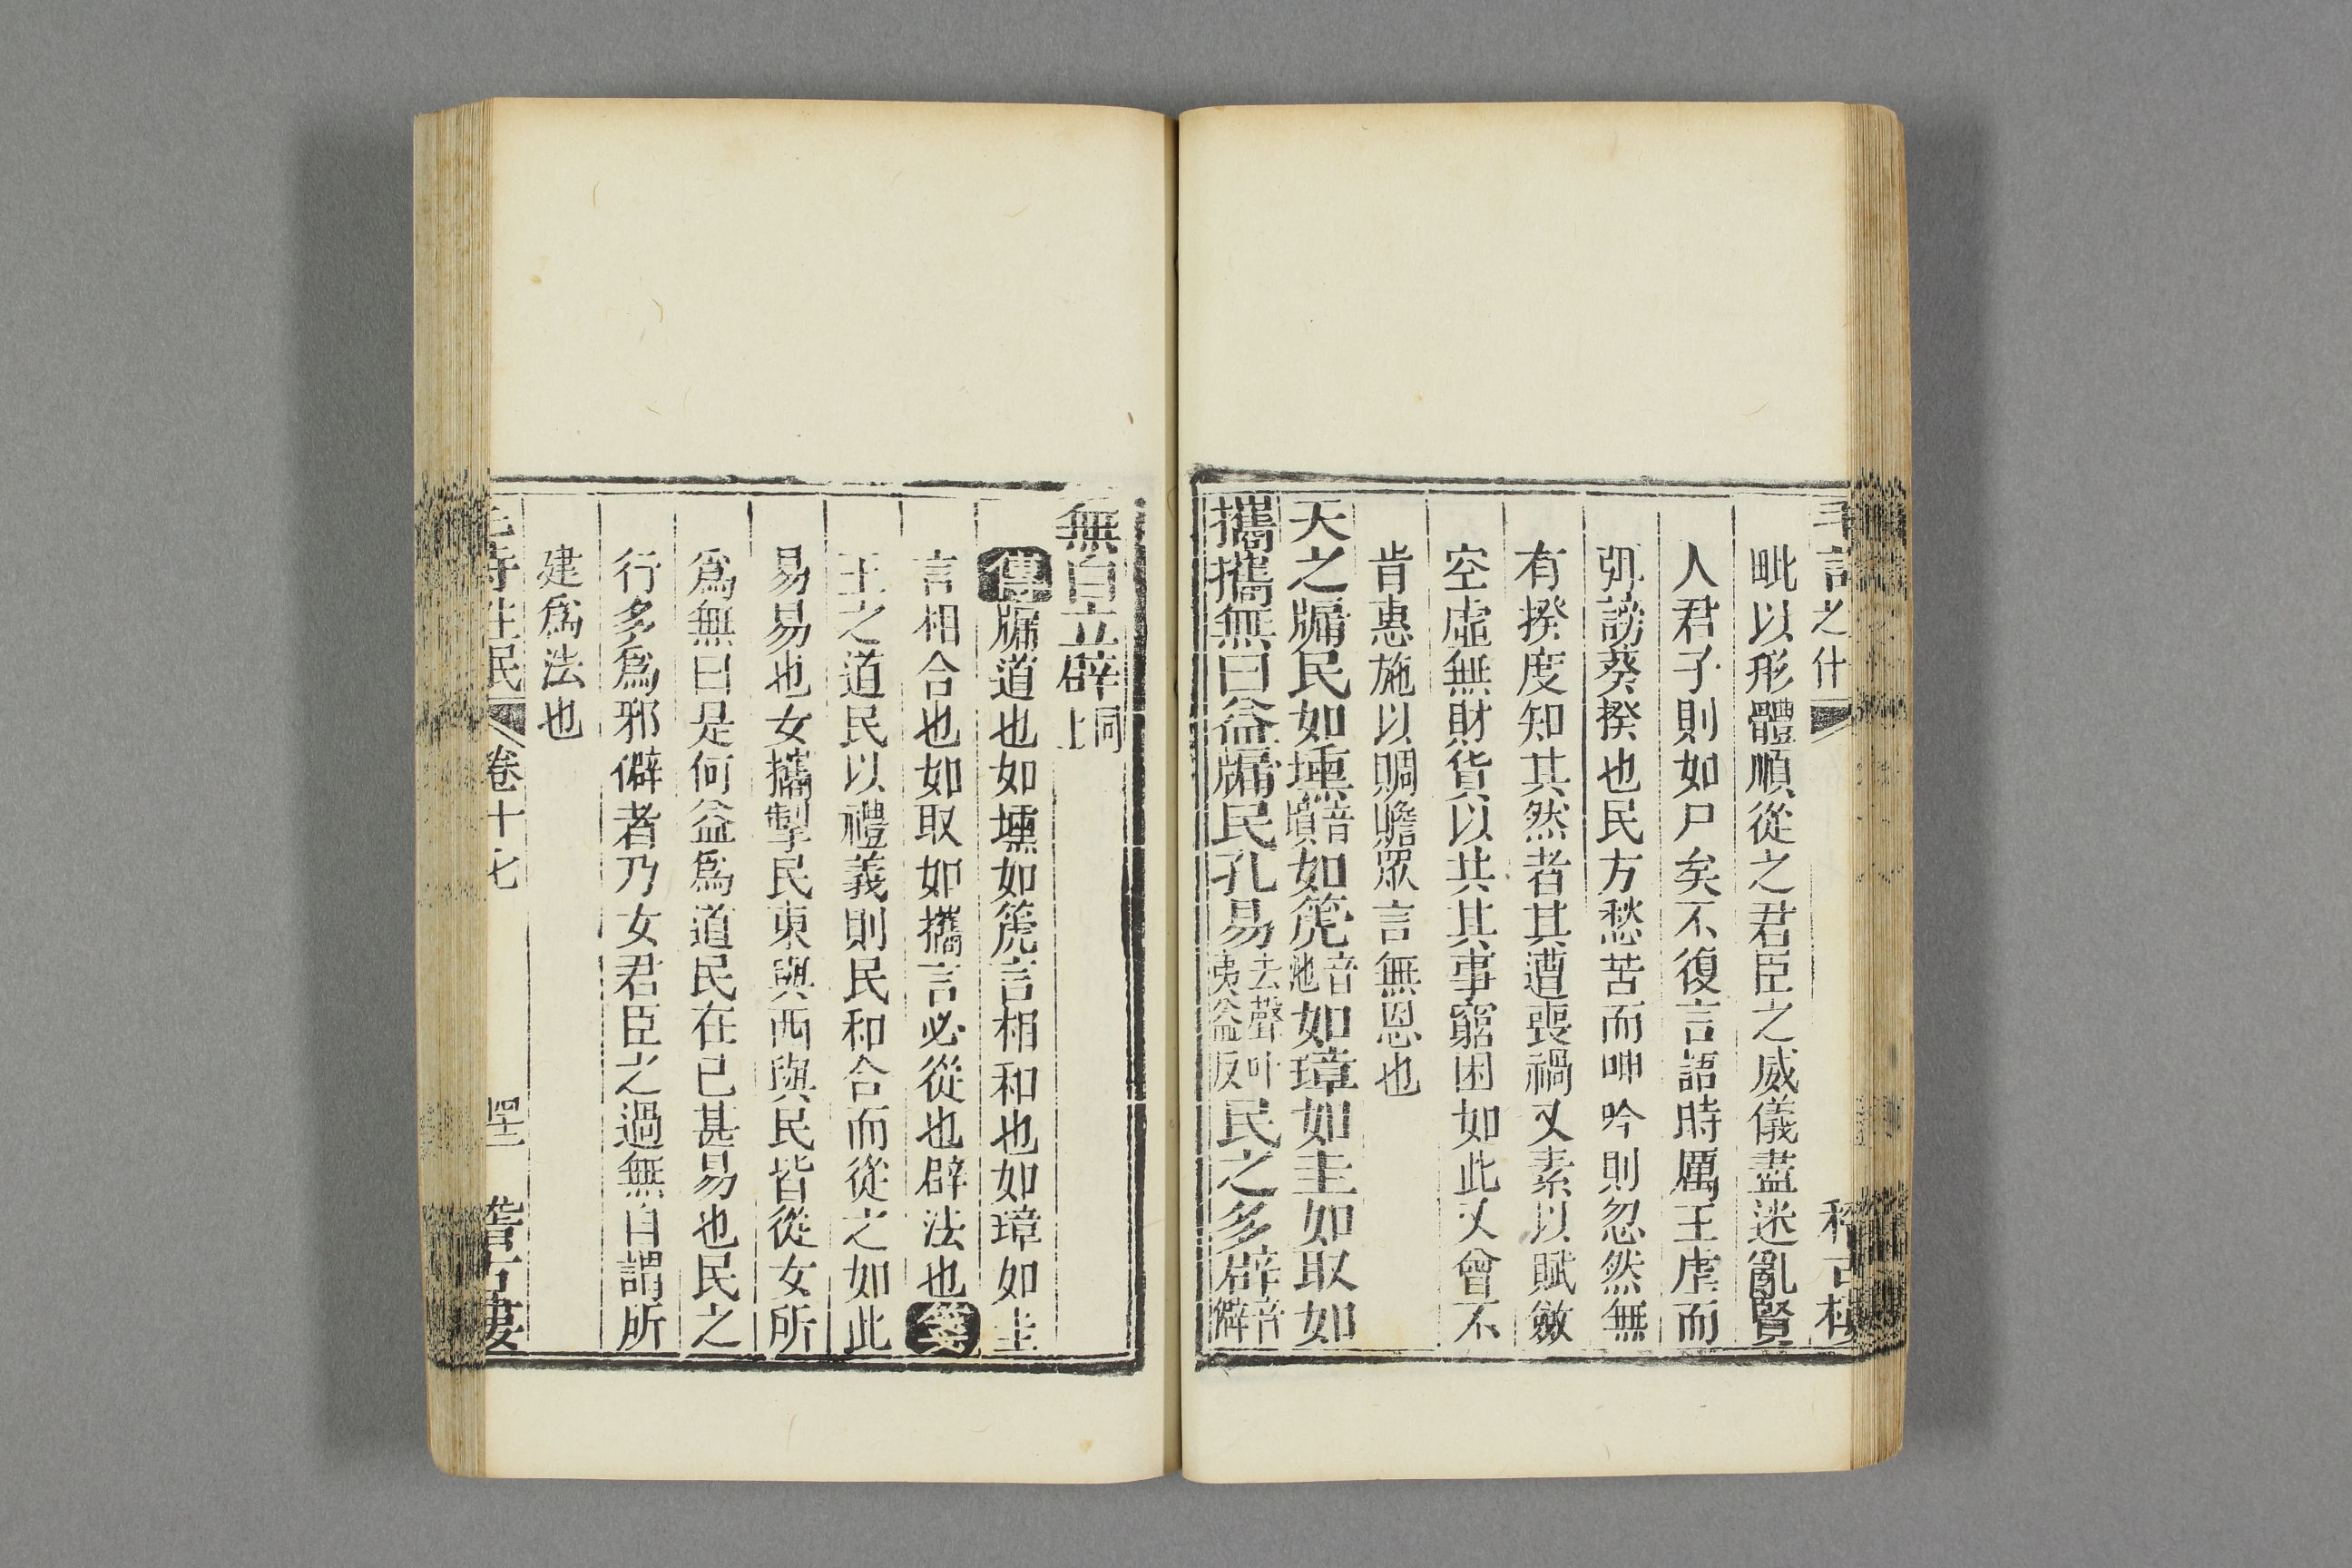 毗以形體順從之君臣之威儀盡迷亂賢
人君子則如尸矣不復言語時厲王虐而
弭謗葵揆也民方愁苦而呻吟則忽然無
有揆度知其然者其遭喪禍又素以賦斂
空虛無財貨以共其事窮困如此又曾不
肯惠施以賙贍眾言無恩也
天之牖民如壎音塤如篪音池如璋如圭如取如
攜攜無曰益牖民孔易去聲叶夷益反民之多辟音僻
無自立辟同上
傳牖道也如壎如篪言相和也如璋如圭
言相合也如取如攜言必從也辟法也箋
王之道民以禮義則民和合而從之如此
易易也女攜掣民東與西與民皆從女所
爲無曰是何益爲道民在己甚易也民之
行多爲邪僻者乃女君臣之過無自謂所
建爲法也
卷十七